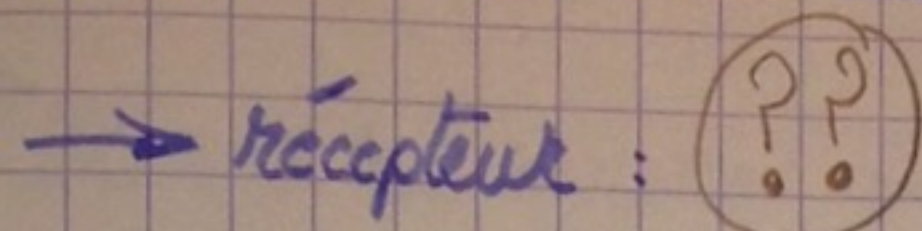 → récepteur : ??